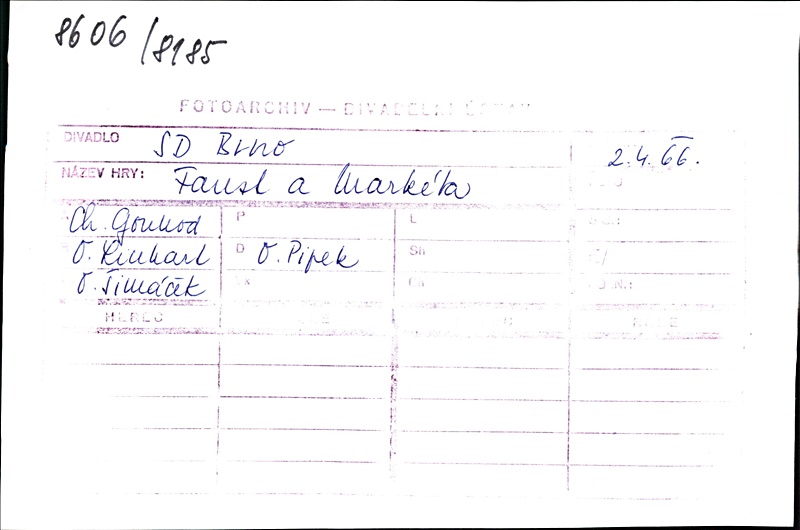 8606/8185
FOTOARCHIV — DIVADELNÍ ÚSTAV
DIVADLO SD Brno 2.4.66.
NÁZEV HRY: Faust a Markéta
Ch. Gounod P L
O. Linhart D O. Pipek Sh
V. Šimáček Ch
HEREC